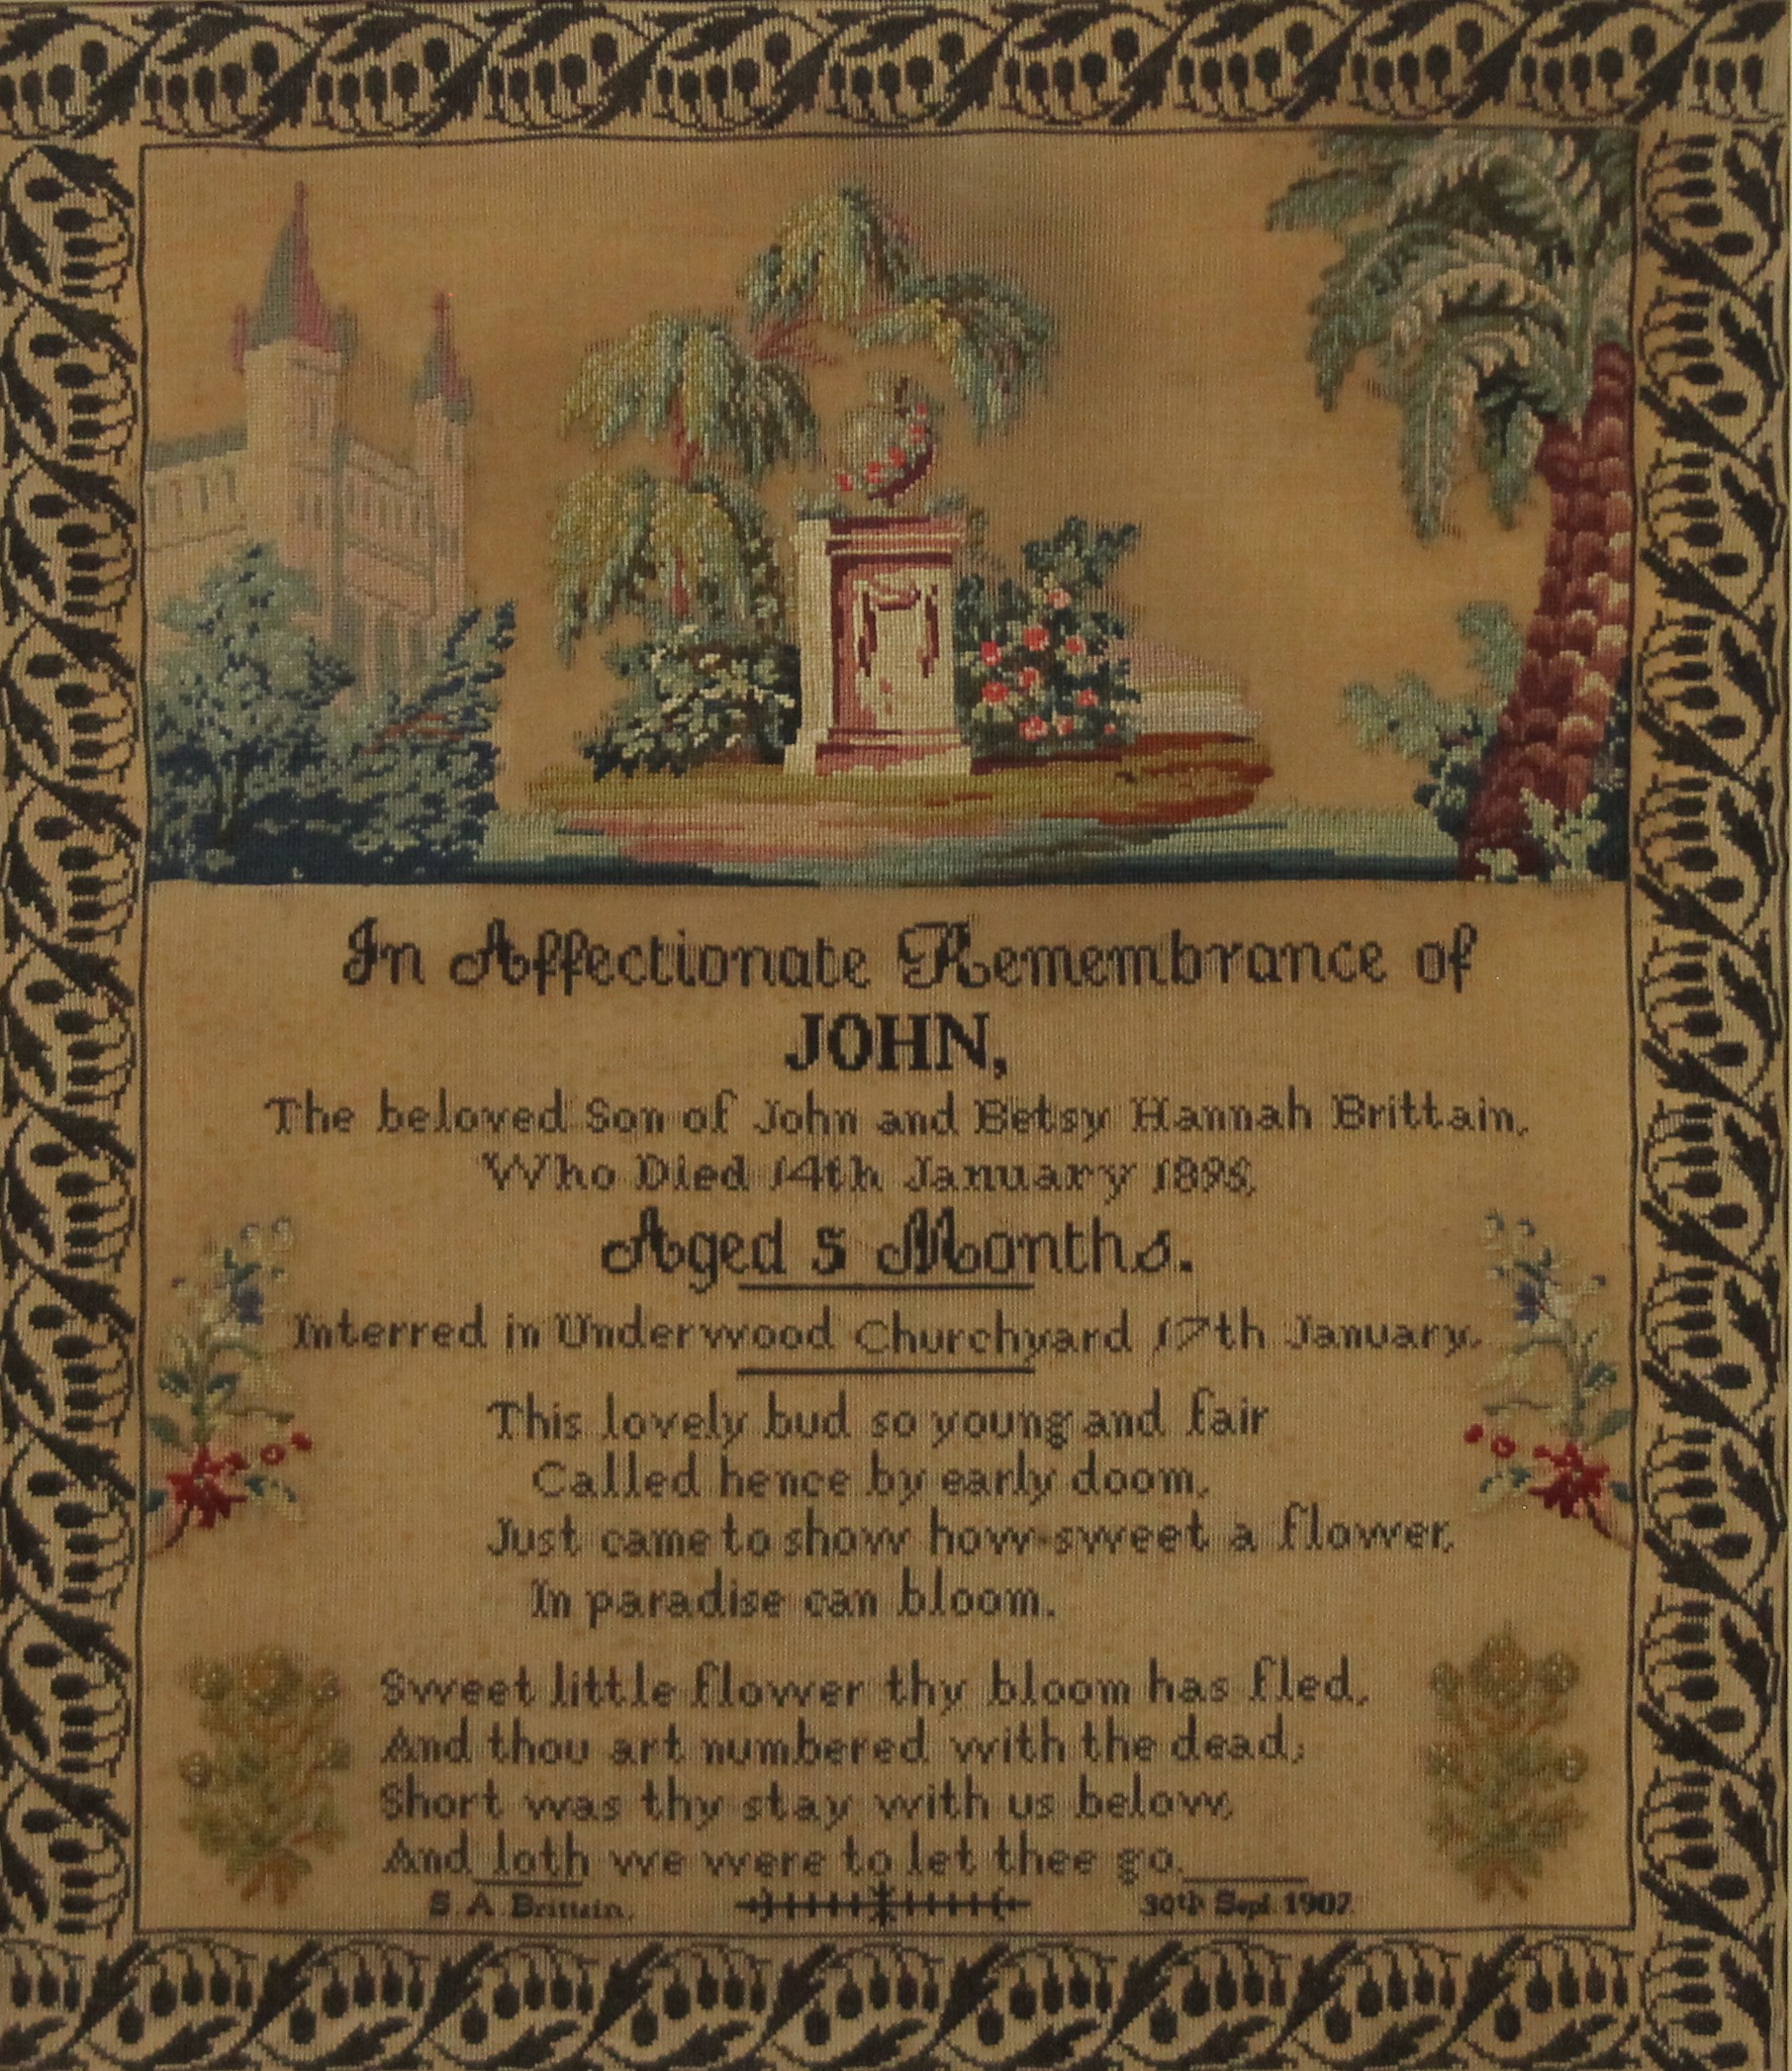 In Affectionate Remembrance of
JOHN,
The beloved Son of John and Betsy Hannah Brittain,
Who Died 14th January 1895,
Aged 5 Months.
Interred in Underwood Churchyard 17th January.
This lovely bud so young and fair
Called hence by early doom,
Just came to show how sweet a flower,
In paradise can bloom.
Sweet little flower thy bloom has fled,
And thou art numbered with the dead;
Short was thy stay with us below,
And loth we were to let thee go.
S. A. Brittain. 30th Sept. 1907.